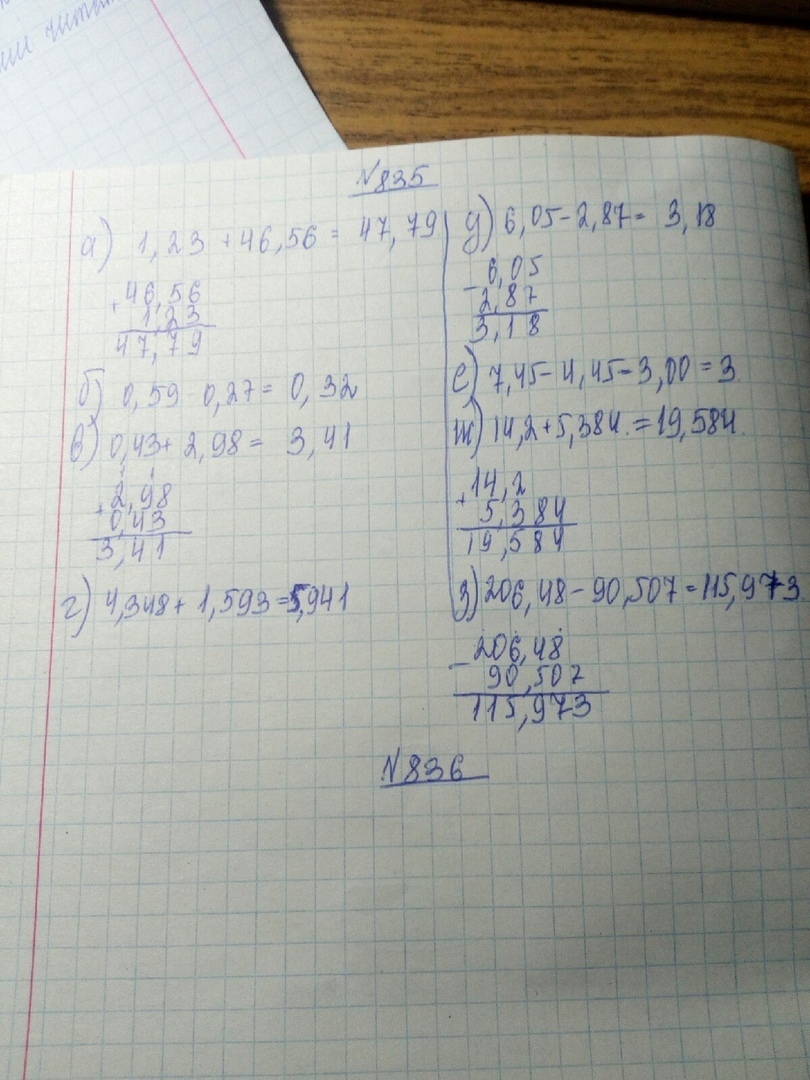 читат
N835
а) 1,23 + 46,56 = 47,79
+ 46,56
1,23
47,79
б) 0,59 - 0,27 = 0,32
в) 0,43 + 2,98 = 3,41
+ 2,98
0,43
3,41
г) 4,348 + 1,593 = 5,941
д) 6,05 - 2,87 = 3,18
- 6,05
2,87
3,18
е) 7,45 - 4,45 = 3,00 = 3
ж) 14,2 + 5,384 = 19,584
+ 14,2
5,384
19,584
з) 206,48 - 90,507 = 115,973
- 206,48
90,507
115,973
N836